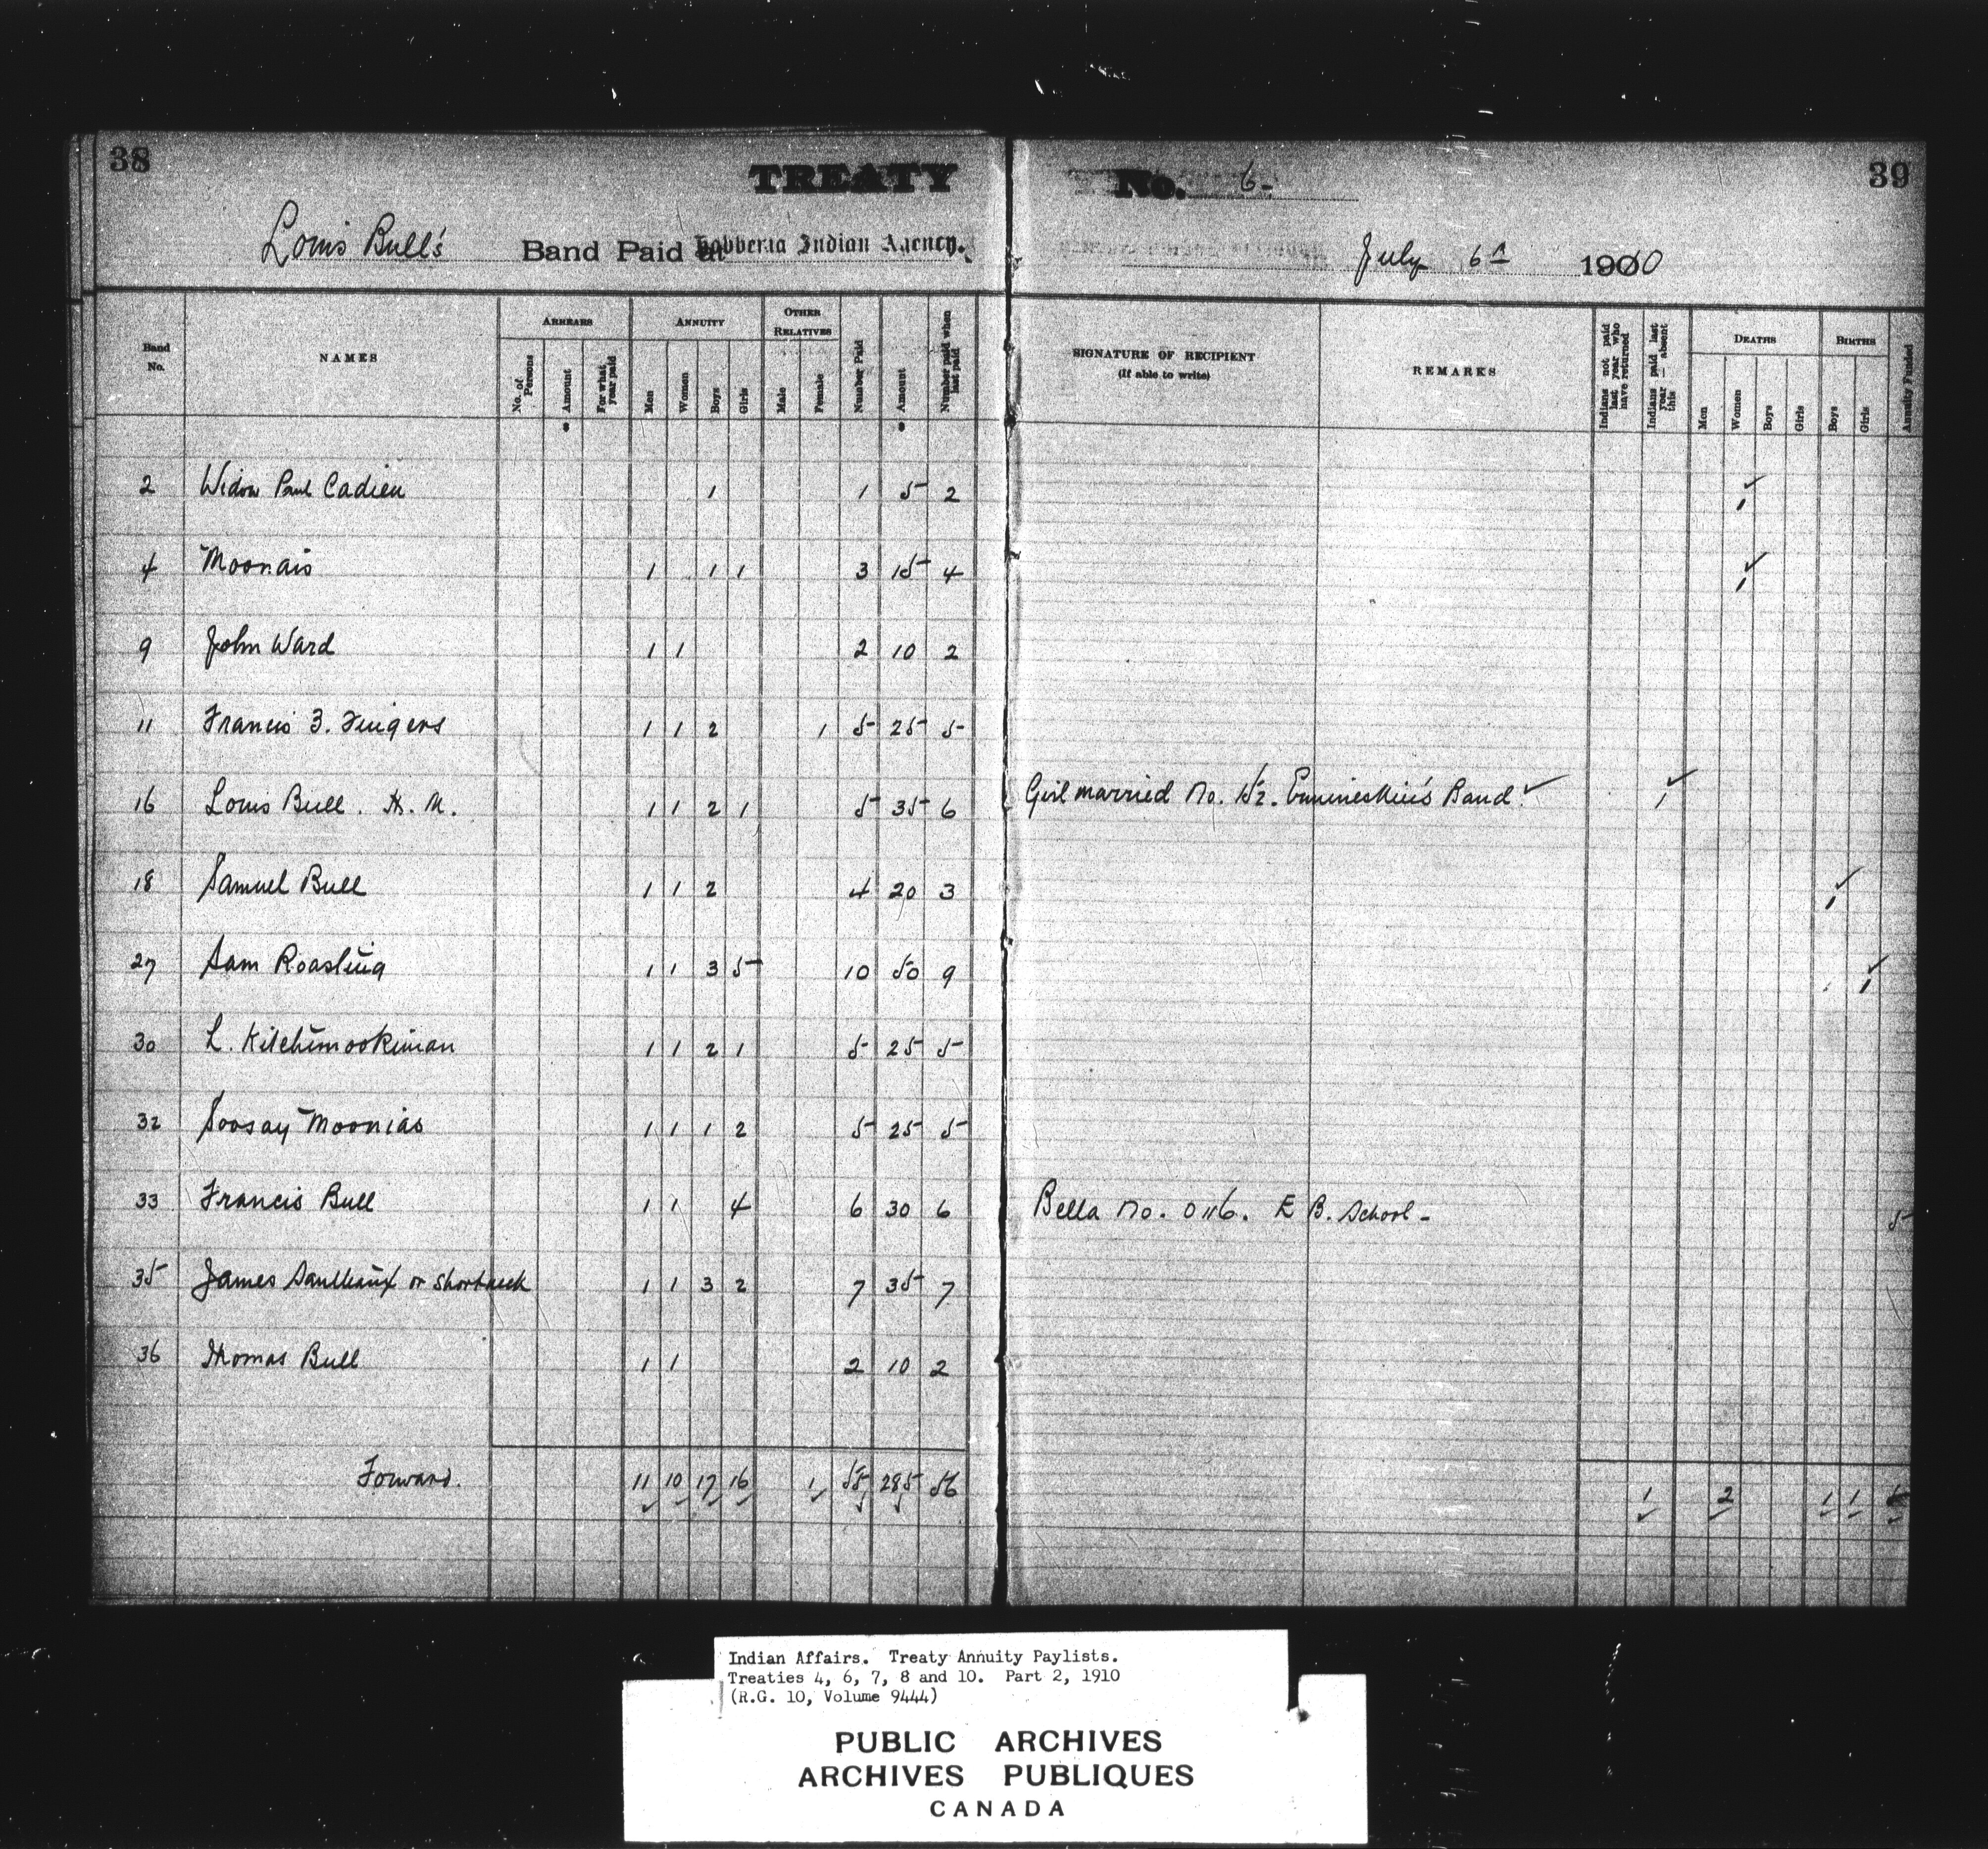 38
TREATY No. 6- 39
Louis Bull's Band Paid at Hobbema Indian Agency. July 6th 1910
Band No. NAMES ARREARS No. of Persons Amount For what year paid ANNUITY Men Women Boys Girls OTHER RELATIVES Male Female Number Paid Amount Number paid when last paid SIGNATURE OF RECIPIENT (If able to write) REMARKS Indians not paid last year who have returned Indians paid last year — absent this DEATHS Men Women Boys Girls BIRTHS Boys Girls Annuity Funded
2 Widow Paul Cadieu 1 1 5 2 1
4 Moonais 1 1 1 3 15 4 1
9 John Ward 1 1 2 10 2
11 Francis 3. Fingers 1 1 2 1 5 25 5
16 Louis Bull. H. M. 1 1 2 1 5 35 6 Girl married No. 152. Ermineskin's Band. 1
18 Samuel Bull 1 1 2 4 20 3 1
27 Sam Roasting 1 1 3 5 10 50 9 1
30 L. Kitchimookiman 1 1 2 1 5 25 5
32 Soosay Moonias 1 1 1 2 5 25 5
33 Francis Bull 1 1 4 6 30 6 Bella No. 0116. E B. School - 5
35 James Saulteaux or Shortneck 1 1 3 2 7 35 7
36 Thomas Bull 1 1 2 10 2
Forward. 11 10 17 16 1 55 285 56 1 2 1 1
Indian Affairs. Treaty Annuity Paylists.
Treaties 4, 6, 7, 8 and 10. Part 2, 1910
(R.G. 10, Volume 9444)
PUBLIC ARCHIVES
ARCHIVES PUBLIQUES
CANADA